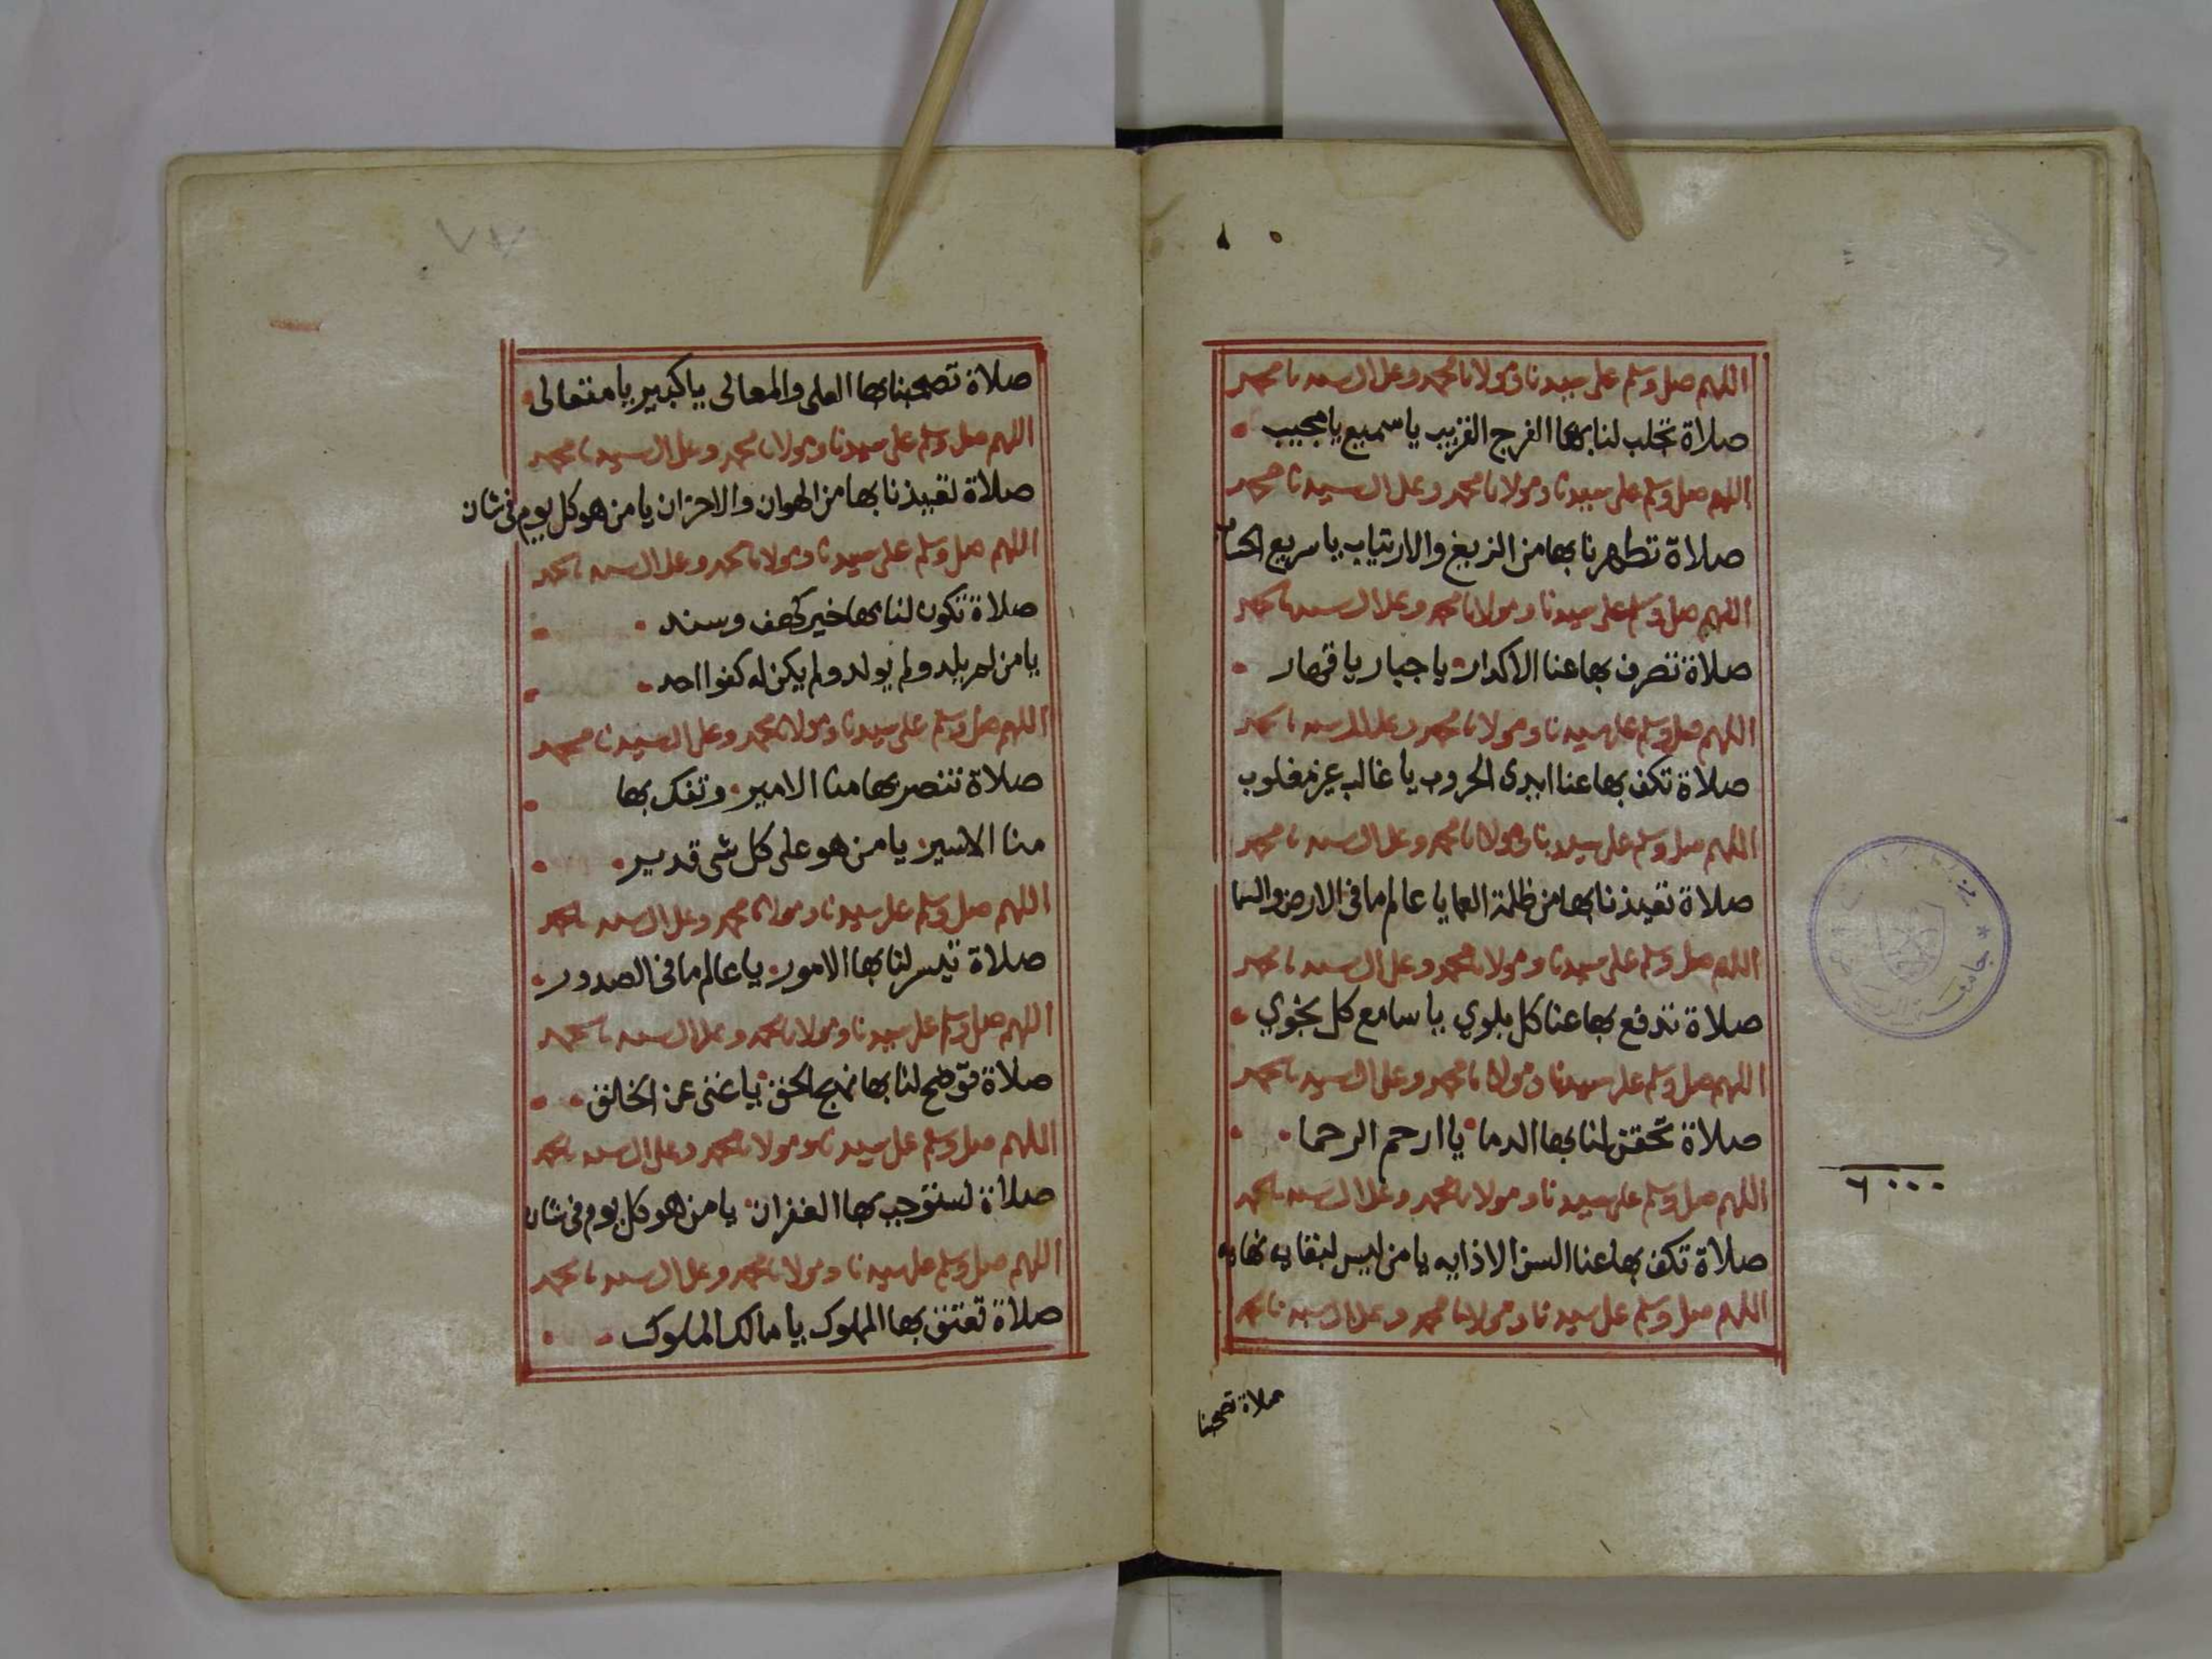 اللهم صل وسلم على سيدنا ومولانا محمد وعلى ال سيدنا محمد
صلاة تجلب لنا بها الفرج القريب يا سميع يا مجيب
اللهم صل وسلم على سيدنا ومولانا محمد وعلى ال سيدنا محمد
صلاة تطهرنا بها من الزيغ والارتياب يا سريع الحساب
اللهم صل وسلم على سيدنا ومولانا محمد وعلى ال سيدنا محمد
صلاة تصرف بها عنا الاكدار يا جبار يا قهار
اللهم صل وسلم على سيدنا ومولانا محمد وعلى ال سيدنا محمد
صلاة تكف بها عنا ايدى الحروب يا غالب غير مغلوب
اللهم صل وسلم على سيدنا ومولانا محمد وعلى ال سيدنا محمد
صلاة تعيذنا بها من ظلمة العما يا عالم ما فى الارض والسما
اللهم صل وسلم على سيدنا ومولانا محمد وعلى ال سيدنا محمد
صلاة تدفع بها عنا كل بلوي يا سامع كل نجوي
اللهم صل وسلم على سيدنا ومولانا محمد وعلى ال سيدنا محمد
صلاة تحقن لنا بها الدما يا ارحم الرحما
اللهم صل وسلم على سيدنا ومولانا محمد وعلى ال سيدنا محمد
صلاة تكف بها عنا السن الاذايه يا من ليس لبقايه نهايه
اللهم صل وسلم على سيدنا ومولانا محمد وعلى ال سيدنا محمد
صلاة تصحبنا
جامعة
٦٠٠٠
صلاة تصحبنا بها العلى والمعالى يا كبير يا متعالى
اللهم صل وسلم على سيدنا ومولانا محمد وعلى ال سيدنا محمد
صلاة تعيذنا بها من الهوان والاحزان يا من هو كل يوم فى شان
اللهم صل وسلم على سيدنا ومولانا محمد وعلى ال سيدنا محمد
صلاة تكون لنا بها خير كهف وسند
يا من لم يلد ولم يولد ولم يكن له كفوا احد
اللهم صل وسلم على سيدنا ومولانا محمد وعلى ال سيدنا محمد
صلاة تنصر بها منا الامير وتفك بها
منا الاسير يا من هو على كل شى قدير
اللهم صل وسلم على سيدنا ومولانا محمد وعلى ال سيدنا محمد
صلاة تيسر لنا بها الامور يا عالم ما فى الصدور
اللهم صل وسلم على سيدنا ومولانا محمد وعلى ال سيدنا محمد
صلاة توضح لنا بها نهج الحق يا غنى عن الخالق
اللهم صل وسلم على سيدنا ومولانا محمد وعلى ال سيدنا محمد
صلاة نستوجب بها الغفران يا من هو كل يوم فى شان
اللهم صل وسلم على سيدنا ومولانا محمد وعلى ال سيدنا محمد
صلاة تعتق بها المملوك يا مالك الملوك